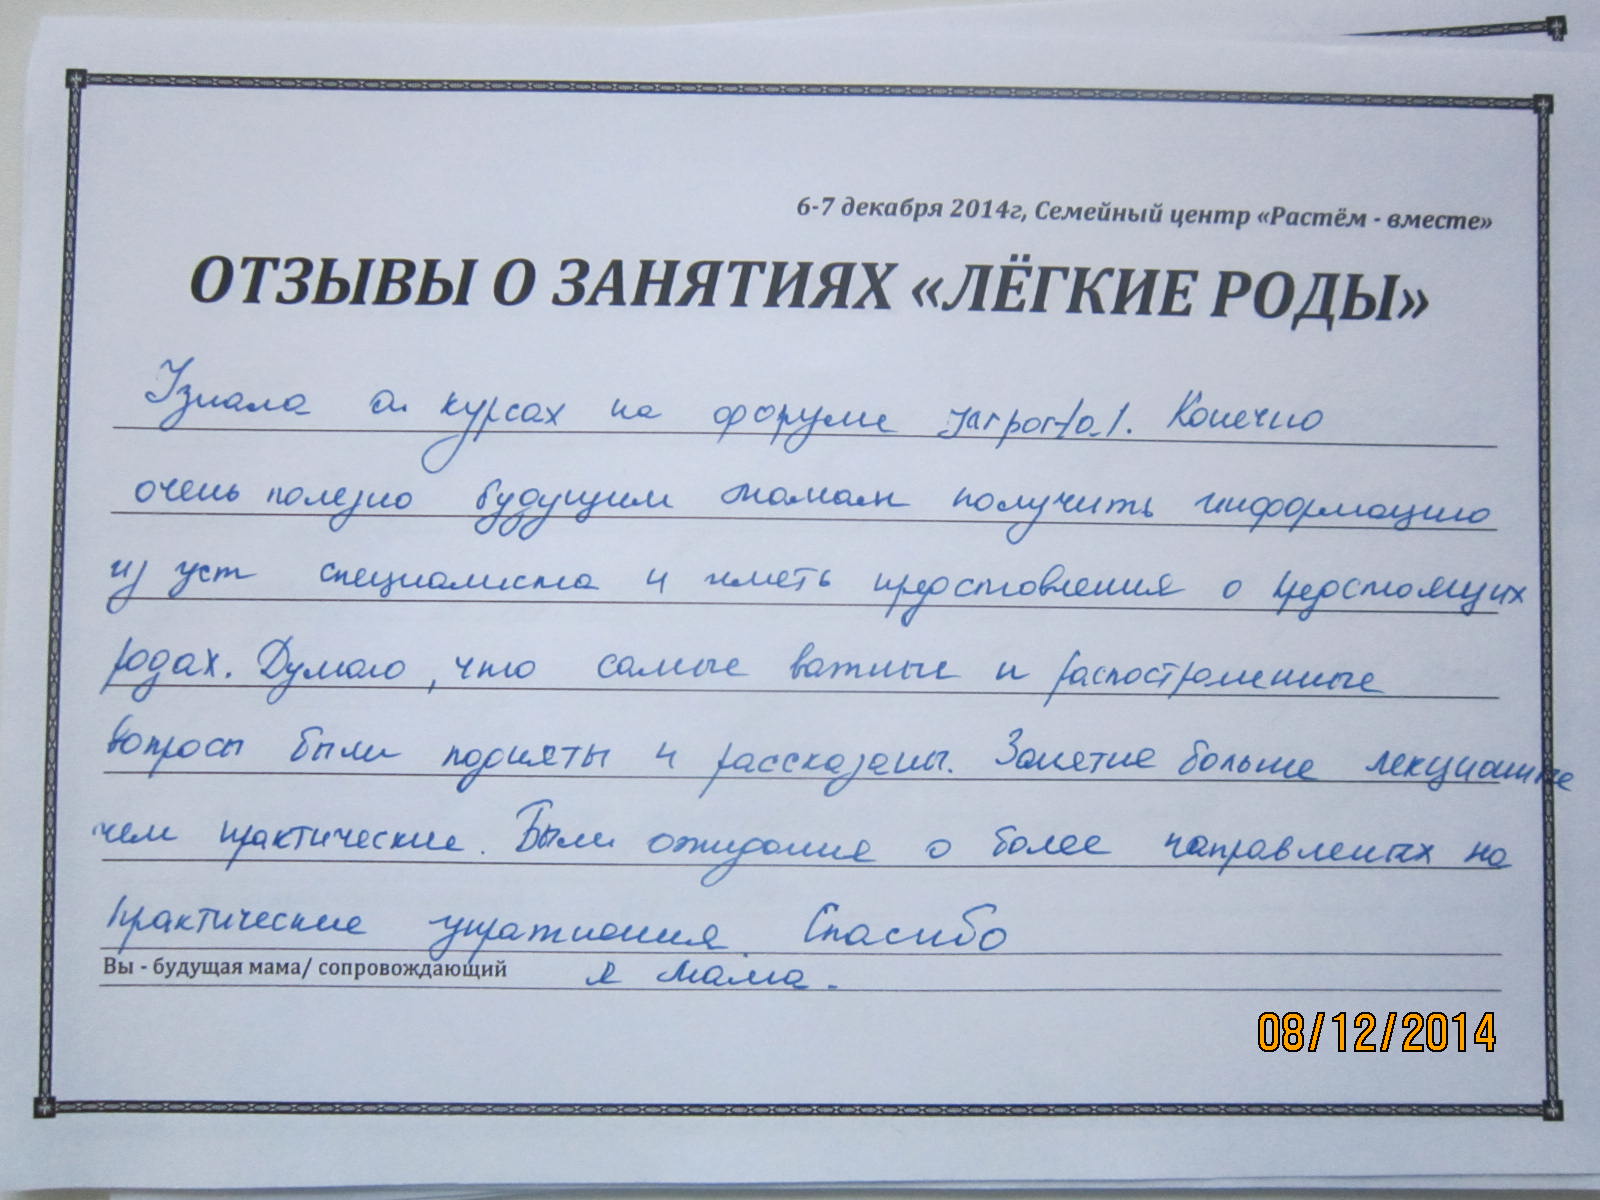 6-7 декабря 2014г, Семейный центр «Растём - вместе»
ОТЗЫВЫ О ЗАНЯТИЯХ «ЛЁГКИЕ РОДЫ»
Узнала о курсах на форуме jarportal. Конечно
очень полезно будущим мамам получить информацию
из уст специалиста и иметь представления о предстоящих
родах. Думаю, что самые важные и распостраненные
вопросы были подняты и рассказаны. Занятие больше лекционные
чем практические. Были ожидания о более направленых на
практические упражнения. Спасибо
Вы - будущая мама/ сопровождающий я мама.
08/12/2014